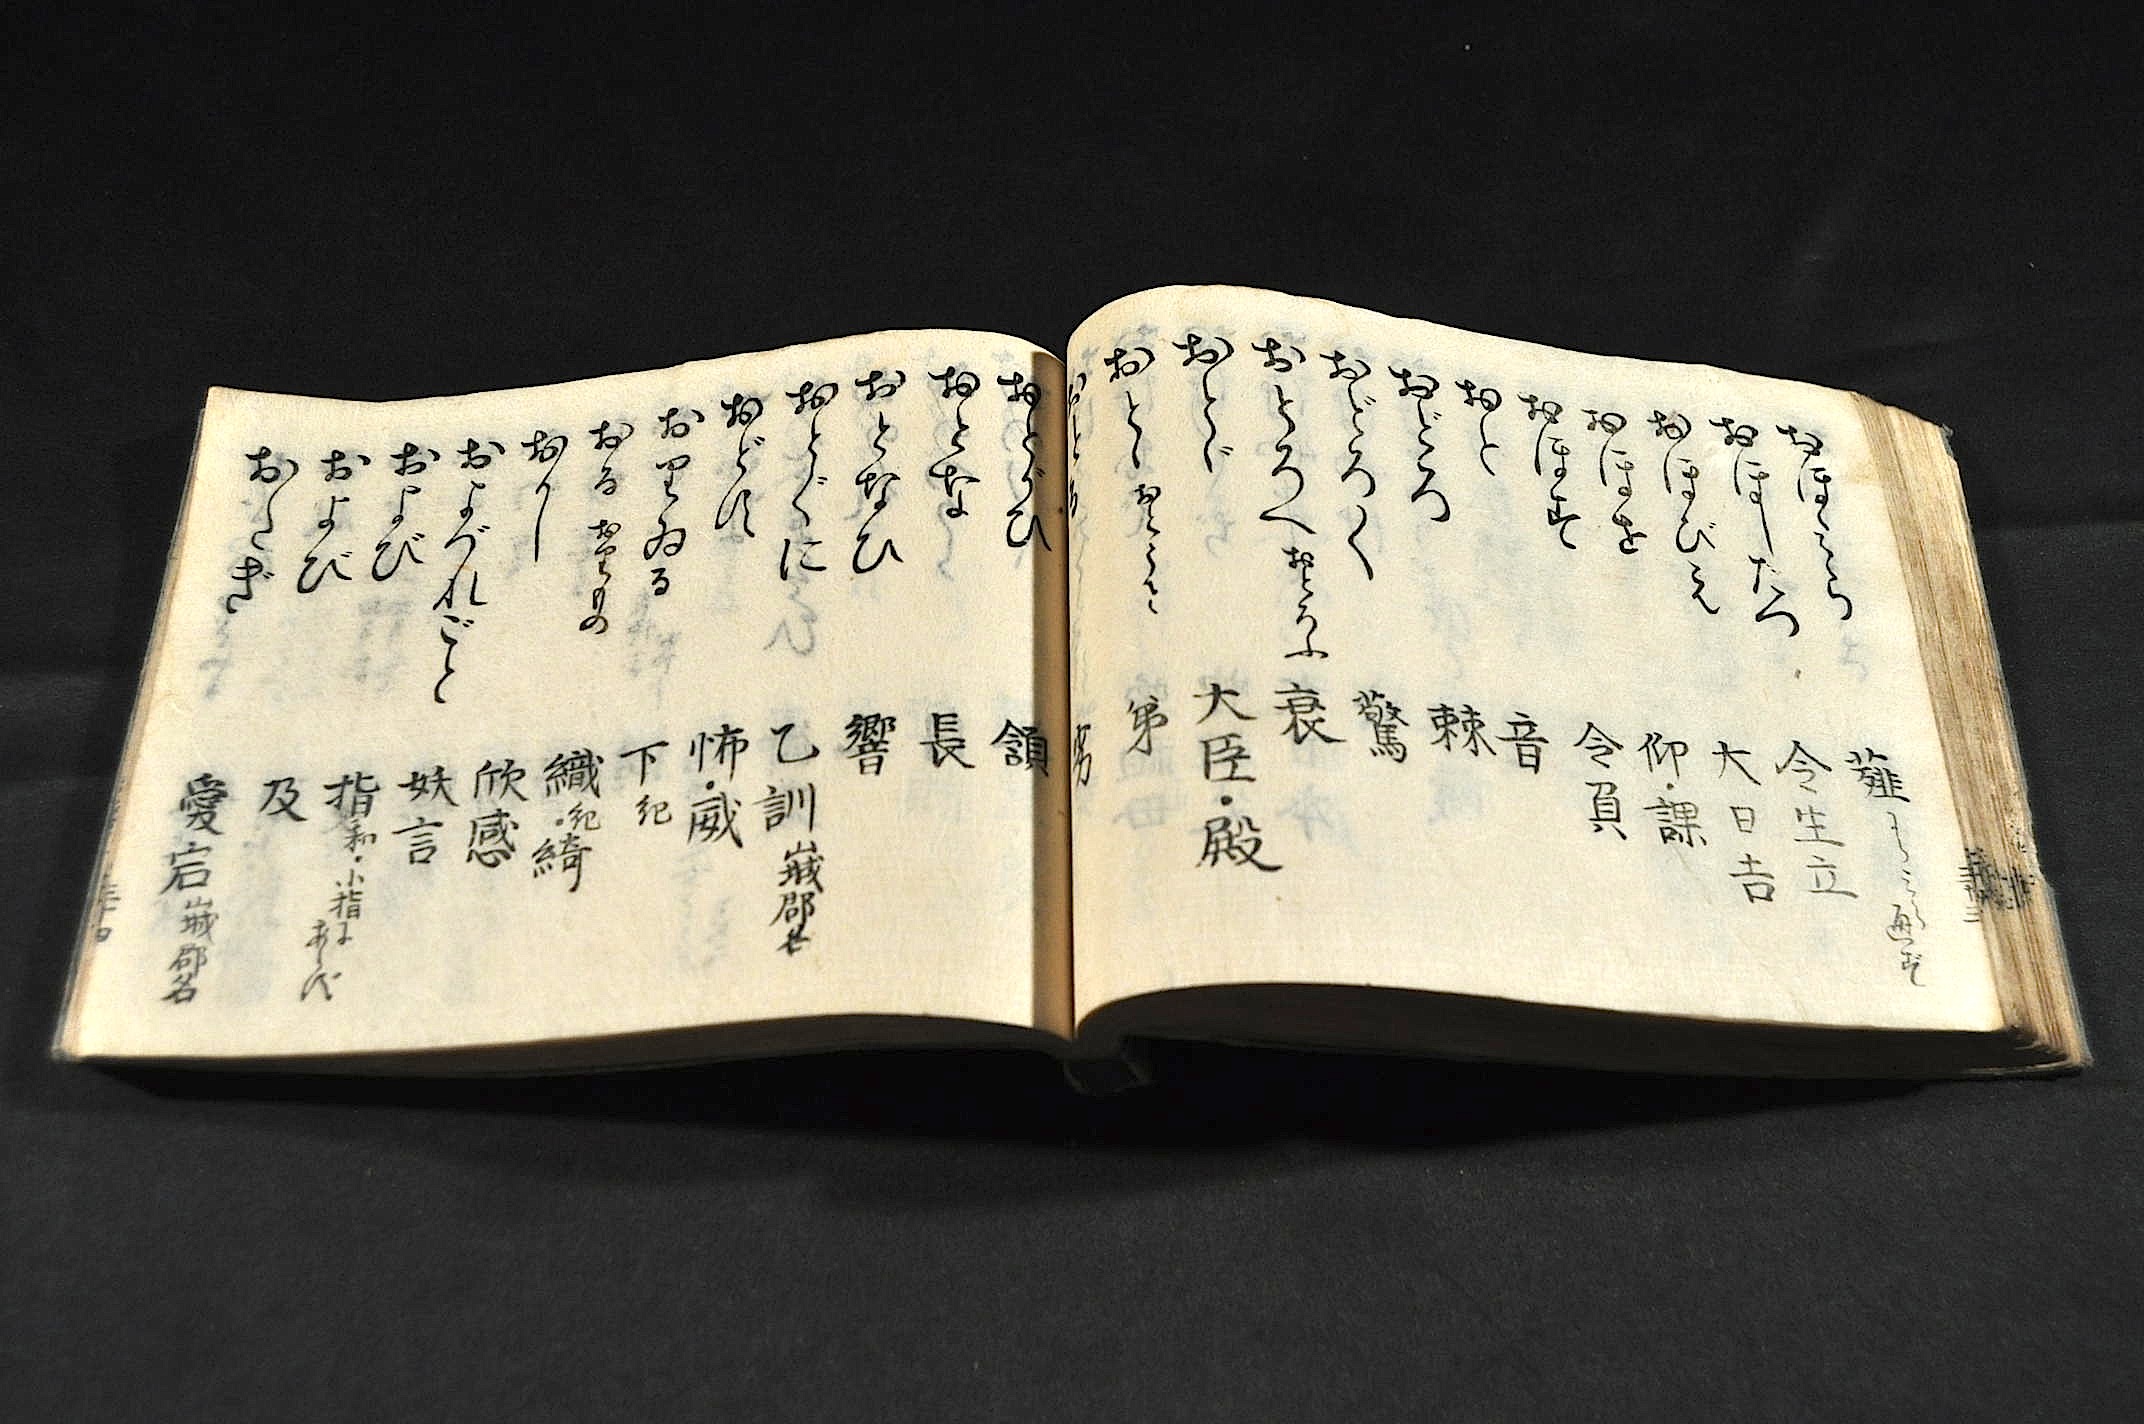 おほみら 薤
おほしたつ 令生立
おほびえ 大日吉
おほせ 仰・課
おほす 令負
おと 音
おどろ 棘
おどろく 驚
おとろへ おとろふ 衰
おとゞ 大臣・殿
おとゝ 弟
おとがひ 頷
おとな 長
おとなひ 響
おとくに 乙訓 山城郡名
おどす 怖・威
おりゐる 下 紀
おる おりもの 織 紀・綺
おかし 欣感
およづれごと 妖言
および 指 和・小指
および 及
おたぎ 愛宕 山城郡名